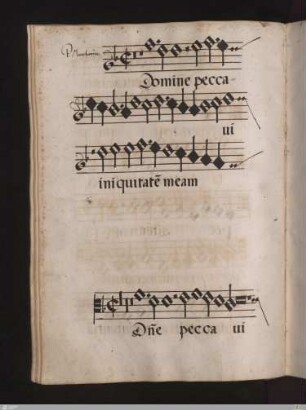 Domine pecca
ui
iniquitatē meam
Dñe pecca ui